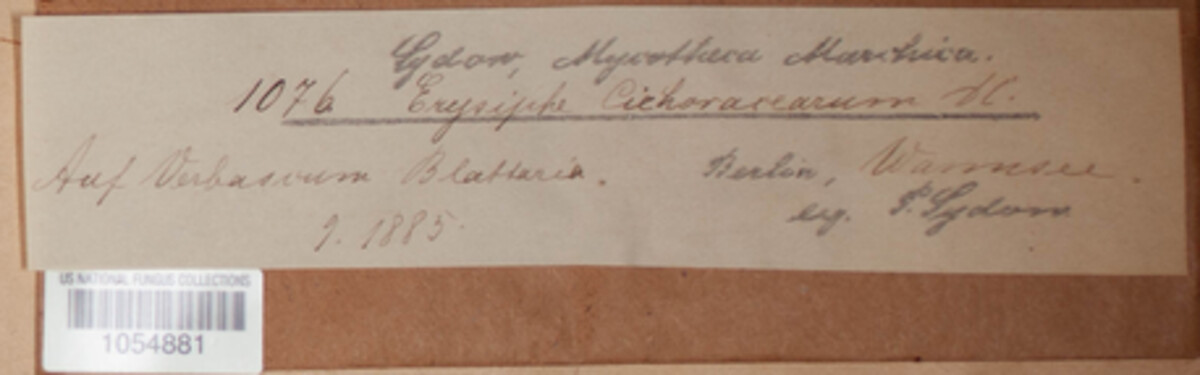 Sydow, Mycotheca Marchica.
1076 Erysiphe Cichoracearum DC.
Auf Verbascum Blattaria. Berlin, Wannsee.
9. 1885. leg. P. Sydow
US NATIONAL FUNGUS COLLECTIONS
1054881